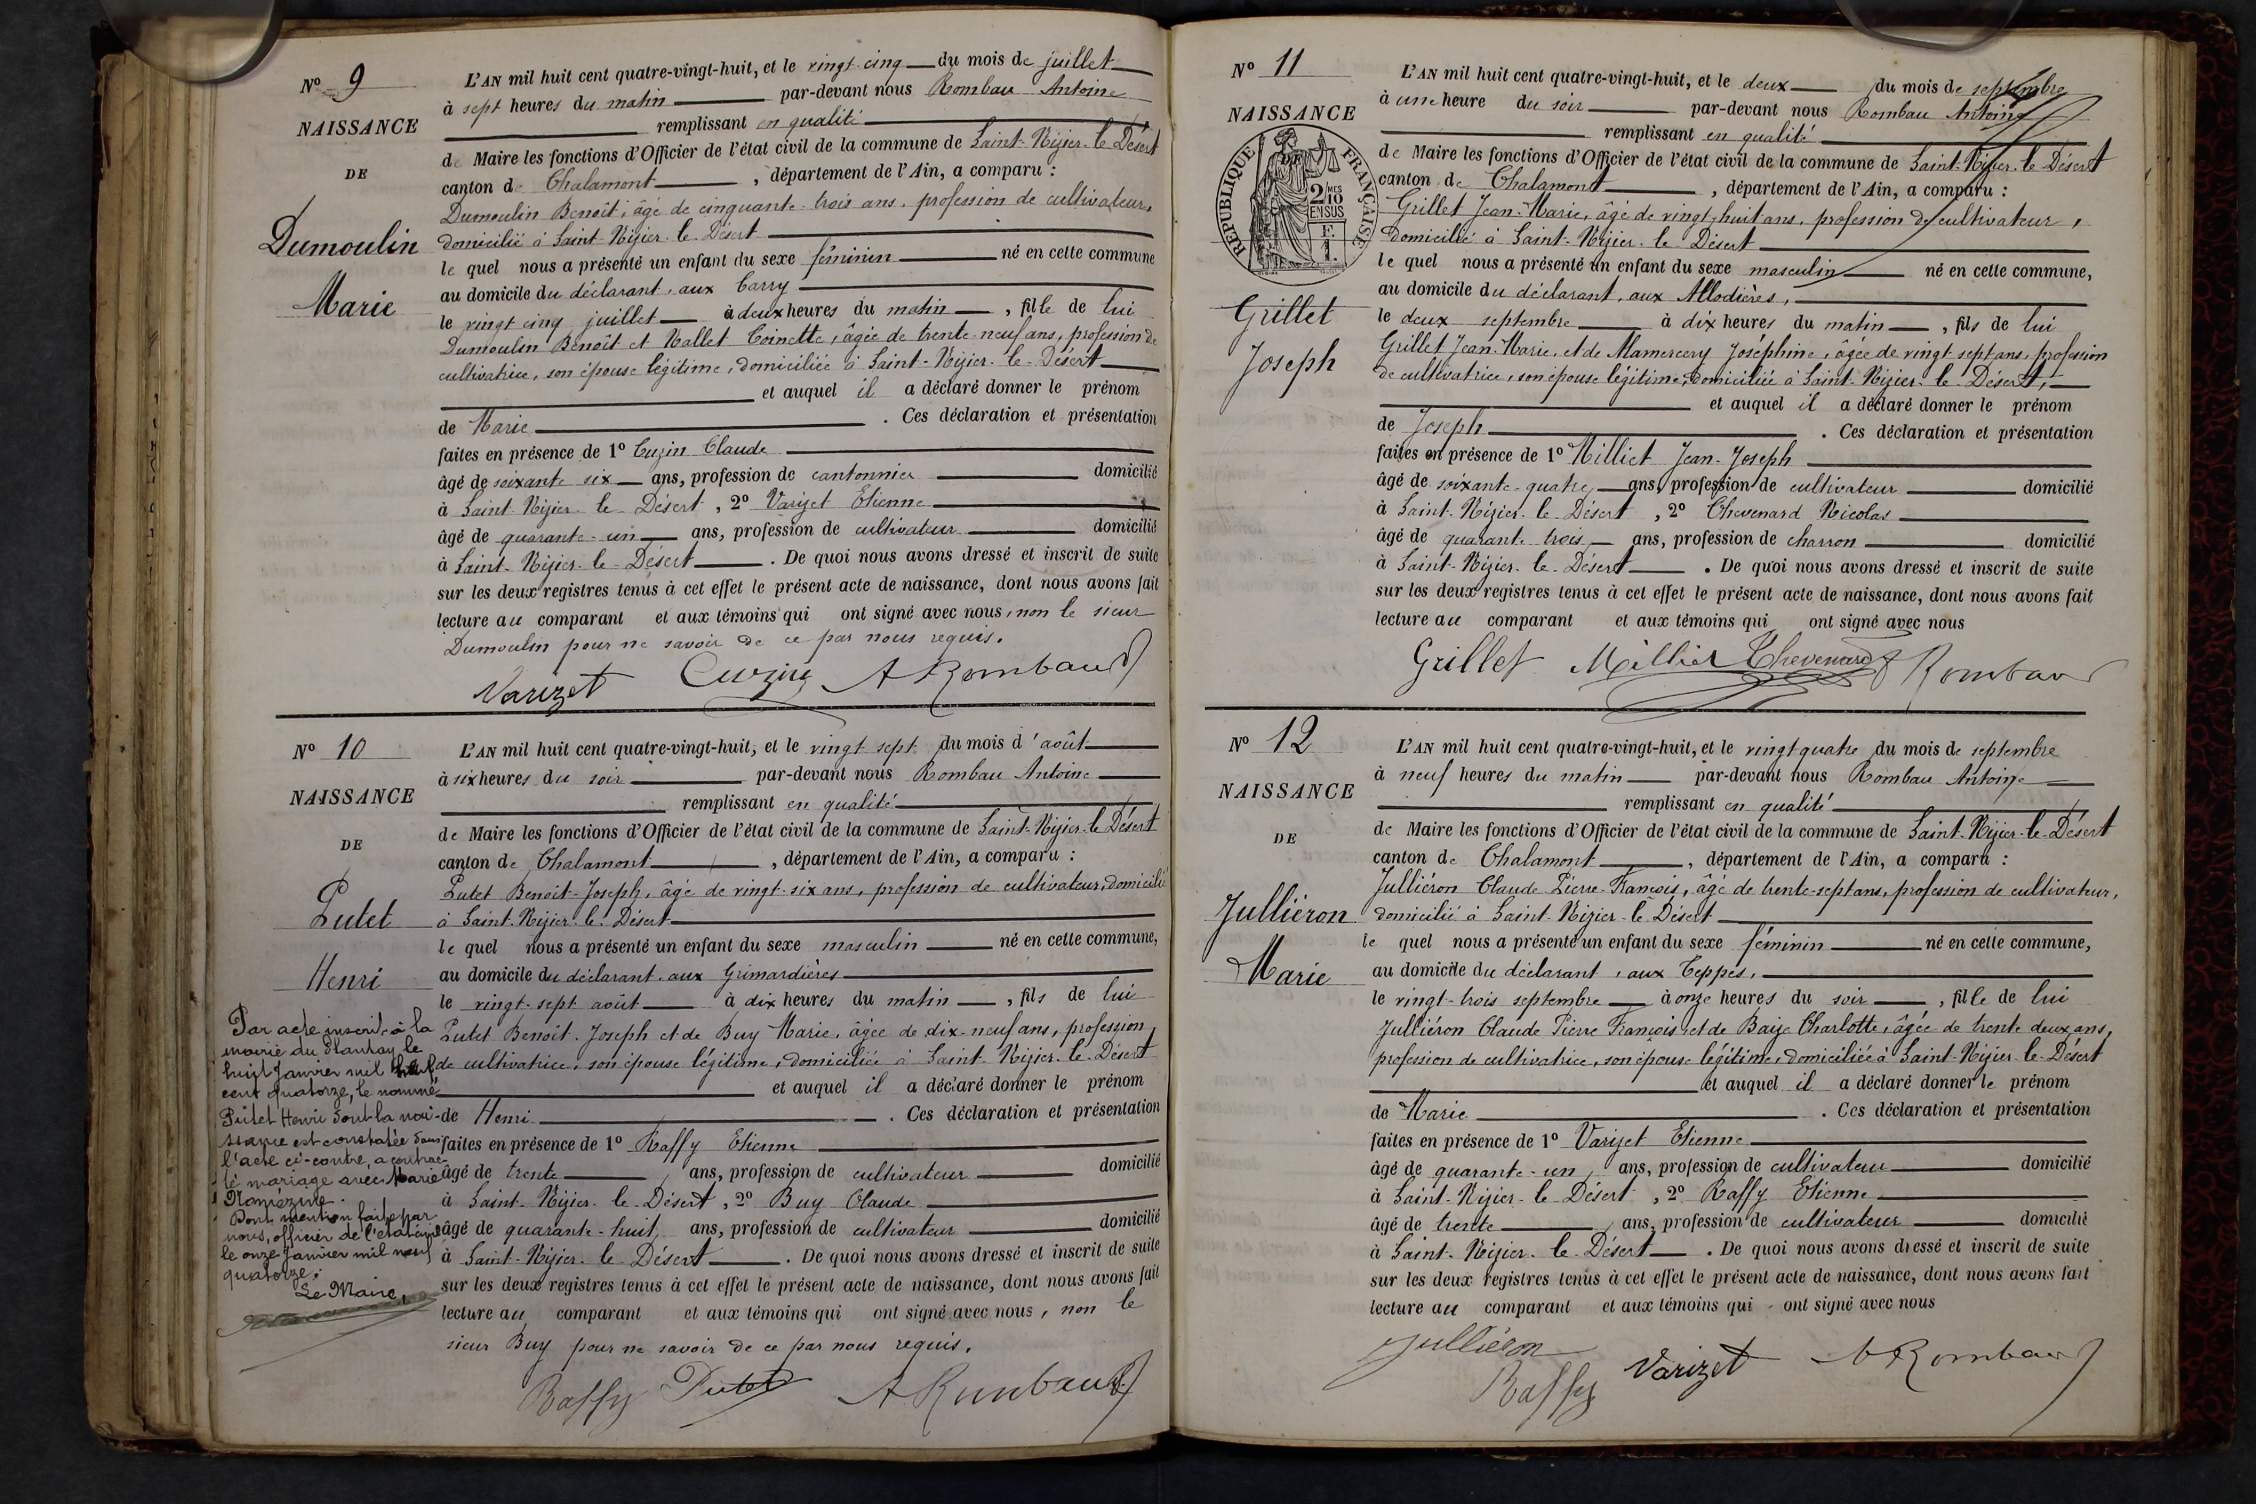 N° 9
NAISSANCE
DE
Dumoulin
Marie
L'AN mil huit cent quatre-vingt-huit, et le vingt-cinq du mois de juillet
à sept heures du matin par-devant nous Rombau Antoine
remplissant en qualité
de Maire les fonctions d'Officier de l'état civil de la commune de Saint-Nizier-le-Désert
canton de Chalamont, département de l'Ain, a comparu :
Dumoulin Benoît, âgé de cinquante-trois ans, profession de cultivateur,
domicilié à Saint-Nizier-le-Désert
le quel nous a présenté un enfant du sexe féminin né en cette commune
au domicile du déclarant, aux Carry
le vingt cinq juillet à deux heures du matin, fille de lui
Dumoulin Benoît et Nallet Toinette, âgée de trente-neuf ans, profession de
cultivatrice, son épouse légitime, domiciliée à Saint-Nizier-le-Désert
et auquel il a déclaré donner le prénom
de Marie. Ces déclaration et présentation
faites en présence de 1° Cuzin Claude
âgé de soixante six ans, profession de cantonnier domicilié
à Saint-Nizier-le-Désert, 2° Varizet Etienne
âgé de quarante-un ans, profession de cultivateur domicilié
à Saint-Nizier-le-Désert. De quoi nous avons dressé et inscrit de suite
sur les deux registres tenus à cet effet le présent acte de naissance, dont nous avons fait
lecture au comparant et aux témoins qui ont signé avec nous, non le sieur
Dumoulin pour ne savoir de ce par nous requis.
Varizet Cuzin A Rombaud
N° 10
NAISSANCE
DE
Putet
Henri
Par acte inscrit à la
mairie du Plantay le
huit Janvier mil neuf
cent quatorze, le nommé
Putet Henri dont la nais-
sance est constatée dans
l'acte ci-contre, a contrac-
té mariage avec Marie
Dont mention faite par
nous, officier de l'état civil
le onze Janvier mil neuf
quatorze.
Le Maire,
L'AN mil huit cent quatre-vingt-huit, et le vingt sept du mois d'août
à six heures du soir par-devant nous Rombau Antoine
remplissant en qualité
de Maire les fonctions d'Officier de l'état civil de la commune de Saint-Nizier-le-Désert
canton de Chalamont, département de l'Ain, a comparu :
Putet Benoît-Joseph, âgé de vingt-six ans, profession de cultivateur, domicilié
à Saint-Nizier-le-Désert
le quel nous a présenté un enfant du sexe masculin né en cette commune,
au domicile du déclarant, aux Grimardières
le vingt-sept août à dix heures du matin, fils de lui
Putet Benoît-Joseph et de Buy Marie, âgée de dix-neuf ans, profession
de cultivatrice, son épouse légitime, domiciliée à Saint-Nizier-le-Désert
et auquel il a déclaré donner le prénom
de Henri. Ces déclaration et présentation
faites en présence de 1° Raffy Etienne
âgé de trente ans, profession de cultivateur domicilié
à Saint-Nizier-le-Désert, 2° Buy Claude
âgé de quarante-huit ans, profession de cultivateur domicilié
à Saint-Nizier-le-Désert. De quoi nous avons dressé et inscrit de suite
sur les deux registres tenus à cet effet le présent acte de naissance, dont nous avons fait
lecture au comparant et aux témoins qui ont signé avec nous, non le
sieur Buy pour ne savoir de ce par nous requis.
Raffy Putet A Rombaud
N° 11
NAISSANCE
DE
RÉPUBLIQUE FRANÇAISE
2/10 MES
EN SUS
F.
1.
Grillet
Joseph
L'AN mil huit cent quatre-vingt-huit, et le deux du mois de septembre
à une heure du soir par-devant nous Rombau Antoine
remplissant en qualité
de Maire les fonctions d'Officier de l'état civil de la commune de Saint-Nizier-le-Désert
canton de Chalamont, département de l'Ain, a comparu :
Grillet Jean-Marie, âgé de vingt-huit ans, profession de cultivateur,
domicilié à Saint-Nizier-le-Désert
le quel nous a présenté un enfant du sexe masculin né en cette commune,
au domicile du déclarant, aux Allodières,
le deux septembre à dix heures du matin, fils de lui
Grillet Jean-Marie, et de Mamercery Joséphine, âgée de vingt sept ans, profession
de cultivatrice, son épouse légitime, domiciliée à Saint-Nizier-le-Désert,
et auquel il a déclaré donner le prénom
de Joseph. Ces déclaration et présentation
faites en présence de 1° Milliet Jean-Joseph
âgé de soixante-quatre ans, profession de cultivateur domicilié
à Saint-Nizier-le-Désert, 2° Chevenard Nicolas
âgé de quarante-trois ans, profession de charron domicilié
à Saint-Nizier-le-Désert. De quoi nous avons dressé et inscrit de suite
sur les deux registres tenus à cet effet le présent acte de naissance, dont nous avons fait
lecture au comparant et aux témoins qui ont signé avec nous
Grillet Milliet Chevenard Rombau
N° 12
NAISSANCE
DE
Julliéron
Marie
L'AN mil huit cent quatre-vingt-huit, et le vingt quatre du mois de septembre
à neuf heures du matin par-devant nous Rombau Antoine
remplissant en qualité
de Maire les fonctions d'Officier de l'état civil de la commune de Saint-Nizier-le-Désert
canton de Chalamont, département de l'Ain, a comparu :
Julliéron Claude Pierre-François, âgé de trente-sept ans, profession de cultivateur,
domicilié à Saint-Nizier-le-Désert
le quel nous a présenté un enfant du sexe féminin né en cette commune,
au domicile du déclarant, aux Teppes,
le vingt-trois septembre à onze heures du soir, fille de lui
Julliéron Claude Pierre François et de Baize Charlotte, âgée de trente deux ans,
profession de cultivatrice, son épouse légitime, domiciliée à Saint-Nizier-le-Désert
et auquel il a déclaré donner le prénom
de Marie. Ces déclaration et présentation
faites en présence de 1° Varizet Etienne
âgé de quarante-un ans, profession de cultivateur domicilié
à Saint-Nizier-le-Désert, 2° Raffy Etienne
âgé de trente ans, profession de cultivateur domicilié
à Saint-Nizier-le-Désert. De quoi nous avons dressé et inscrit de suite
sur les deux registres tenus à cet effet le présent acte de naissance, dont nous avons fait
lecture au comparant et aux témoins qui ont signé avec nous
Julliéron
Raffy Varizet A Rombaud